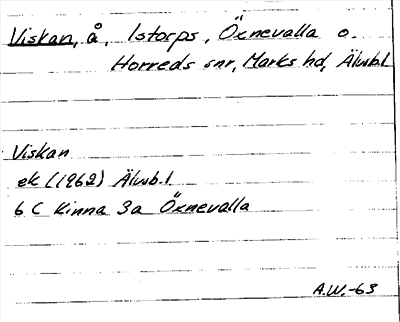 Viskan, å, Istorps, Öxnevalla o.
Horreds snr, Marks hd, Älvsb.l
Viskan
ek (1962) Älvsb.l.
6 C Kinna 3a Öxnevalla
A.W.-63